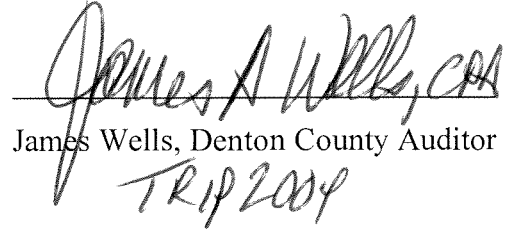 James A Wells, CPA
James Wells, Denton County Auditor
TRIP 2004